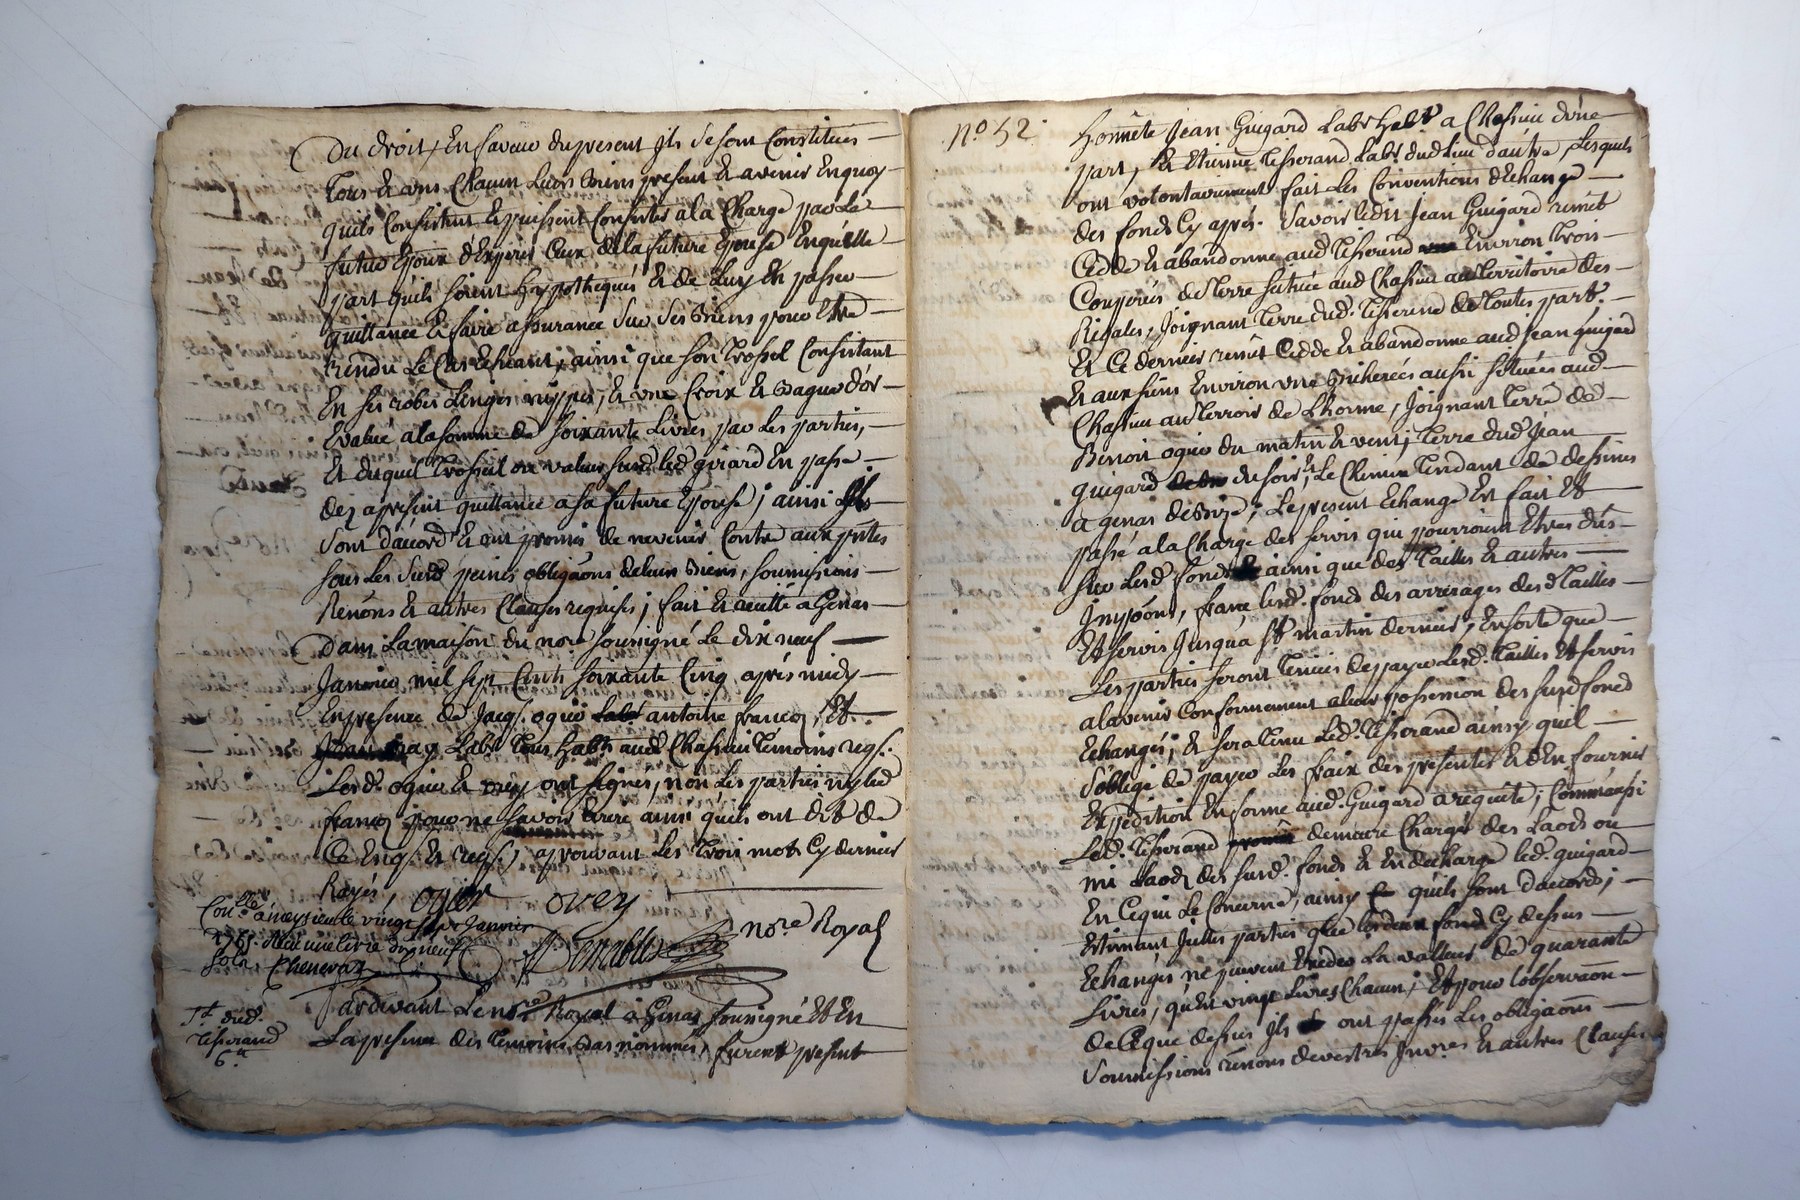 Du droit, En faveur du present Ils se sont Constitués
tous & uns Chacun leurs Biens present & avenir Enquoy
quils Consistent & puissent Consister a la Charge par Le
futur Epoux d'Exiger Ceux de la future Epouse En quelle
part quils soient hypothequés & de Luy En passer
quittance & faire assurance sur ses Biens pour Etre
rendu Le Cas Echeant, ainsi que son trossel Consistant
En ses robes Linges nippes, & une Croix & Bague d'or
Evalué a la somme de soixante Livres par Les parties,
Et duquel trossel ou valeur susd. led. girard En passe
dez apresent quittance a sa future Epouse; ainsi ils
sont d'acord & ont promis de ne venir Contre aux pntes
sous Les susd. peines obligaõns de leurs Biens, soumissions
Renõns & autres Clauses requises; fait & recitté a Genas
Dans La maison du nore soussigné Le dix neuf
Janvier mil sept Cents soixante Cinq après midy
En presence de Jacq. ogier antoine françon, Et
Labr tous habts aud. Chassieu temoins req.
Lesd. ogier & ont signés, non Les parties ny led.
françon pour ne savoir Ecrire ainsi quils ont dit de
Ce Enq. & req.; aprouvant Les trois mots Cy dernier
Rayés, ogier
Conllé a meyzieu le vingt sept Janvier
1765. Reçu une livre dix neuf
sols. Chenevaz
nore Royal
Pardevant Le nore Royal à Genas soussigné Et En
La presence des temoins Bas nommés, furent present
Et dud.
tisserand
6.
No 52
Honnête Jean Guigard Labr habt a Chassieu d'une
part, & Etienne tisserand Labr dud Lieu d'autre, Lesquels
ont volontairement fait Les Conventions d'Echange
des fonds Cy après. Savoir ledit Jean Guigard remét
Cedde & abandonne aud tisserand Environ trois
Couperés de terre scituée aud Chassieu au territoire des
Rigales, Joignant terre dud. tisserand de toutes part.
Et Ce dernier remét Cedde & abandonne aud Jean guigard
& aux siens Environ une Bicherée aussi scituée aud
Chassieu au terroir de Lhorme, Joignant terre de
Benoit ogier du matin & vent; terre dud Jean
guigard du soir, & Le Chemin tendant de dessines
a genas de Bize; Le present Echange Est fait Et
passé a la Charge des servis qui pourroient Etres dus
sur Lesd. fonds ainsi que des tailles & autres
Impõons, franc lesd. fonds des arrerages desd tailles
Et servis Jusqua st martin dernier, En sorte que
Les parties seront tenues de payer Lesd. tailles Et servis
a lavenir Conformement a leur possession des susd fonds
Echangés; & sera tenu Led. tisserand ainsy quil
s'oblige de payer Les fraix des presentes & d'En fournir
Expedition En forme aud. Guigard a requête; Comme aussi
Led. tisserand demeure Chargé des Laods ou
mi Laods des susd. fonds & En decharge led. guigard
En Ce qui Le Concerne, ainsy quils sont d'acord;
Estimant Jcelles parties que les deux fonds Cy dessus
Echangés ne peuvent Exeder La valleur de quarante
Livres, qu'Est vingt Livres Chacun; Et pour l'observaõn
de Ce que dessus Ils ont passés Les obligaõns
soumissions renõns & autres Clauses